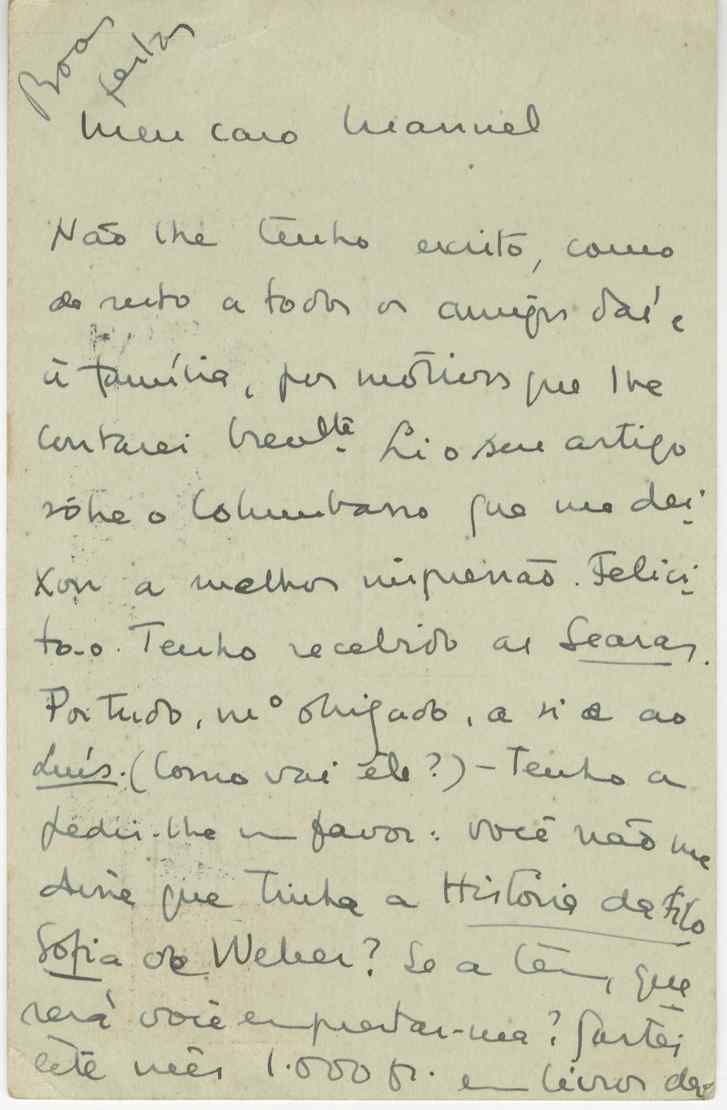 Boas
festas
Meu caro Manuel
Não lhe tenho escrito, como
de resto a todos os amigos daí e
à família, por mótivos que lhe
contarei brevte. Li o seu artigo
sôbre o Columbano que me dei-
xou a melhor impressão. Felici-
to-o. Tenho recebido as Searas.
Por tudo, mto obrigado, a si e ao
Luís. (Como vai êle?) – Tenho a
pedir-lhe um favor: você não me
disse que tinha a História da Filo
sofia de Weber? Se a tem, que-
rerá você emprestar-ma? Gastei
êste mês 1.000 fr. em livros de